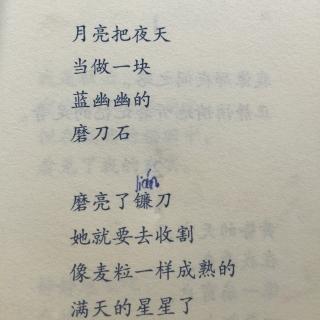 月亮把夜天
当做一块
蓝幽幽的
磨刀石
lián
磨亮了镰刀
她就要去收割
像麦粒一样成熟的
满天的星星了